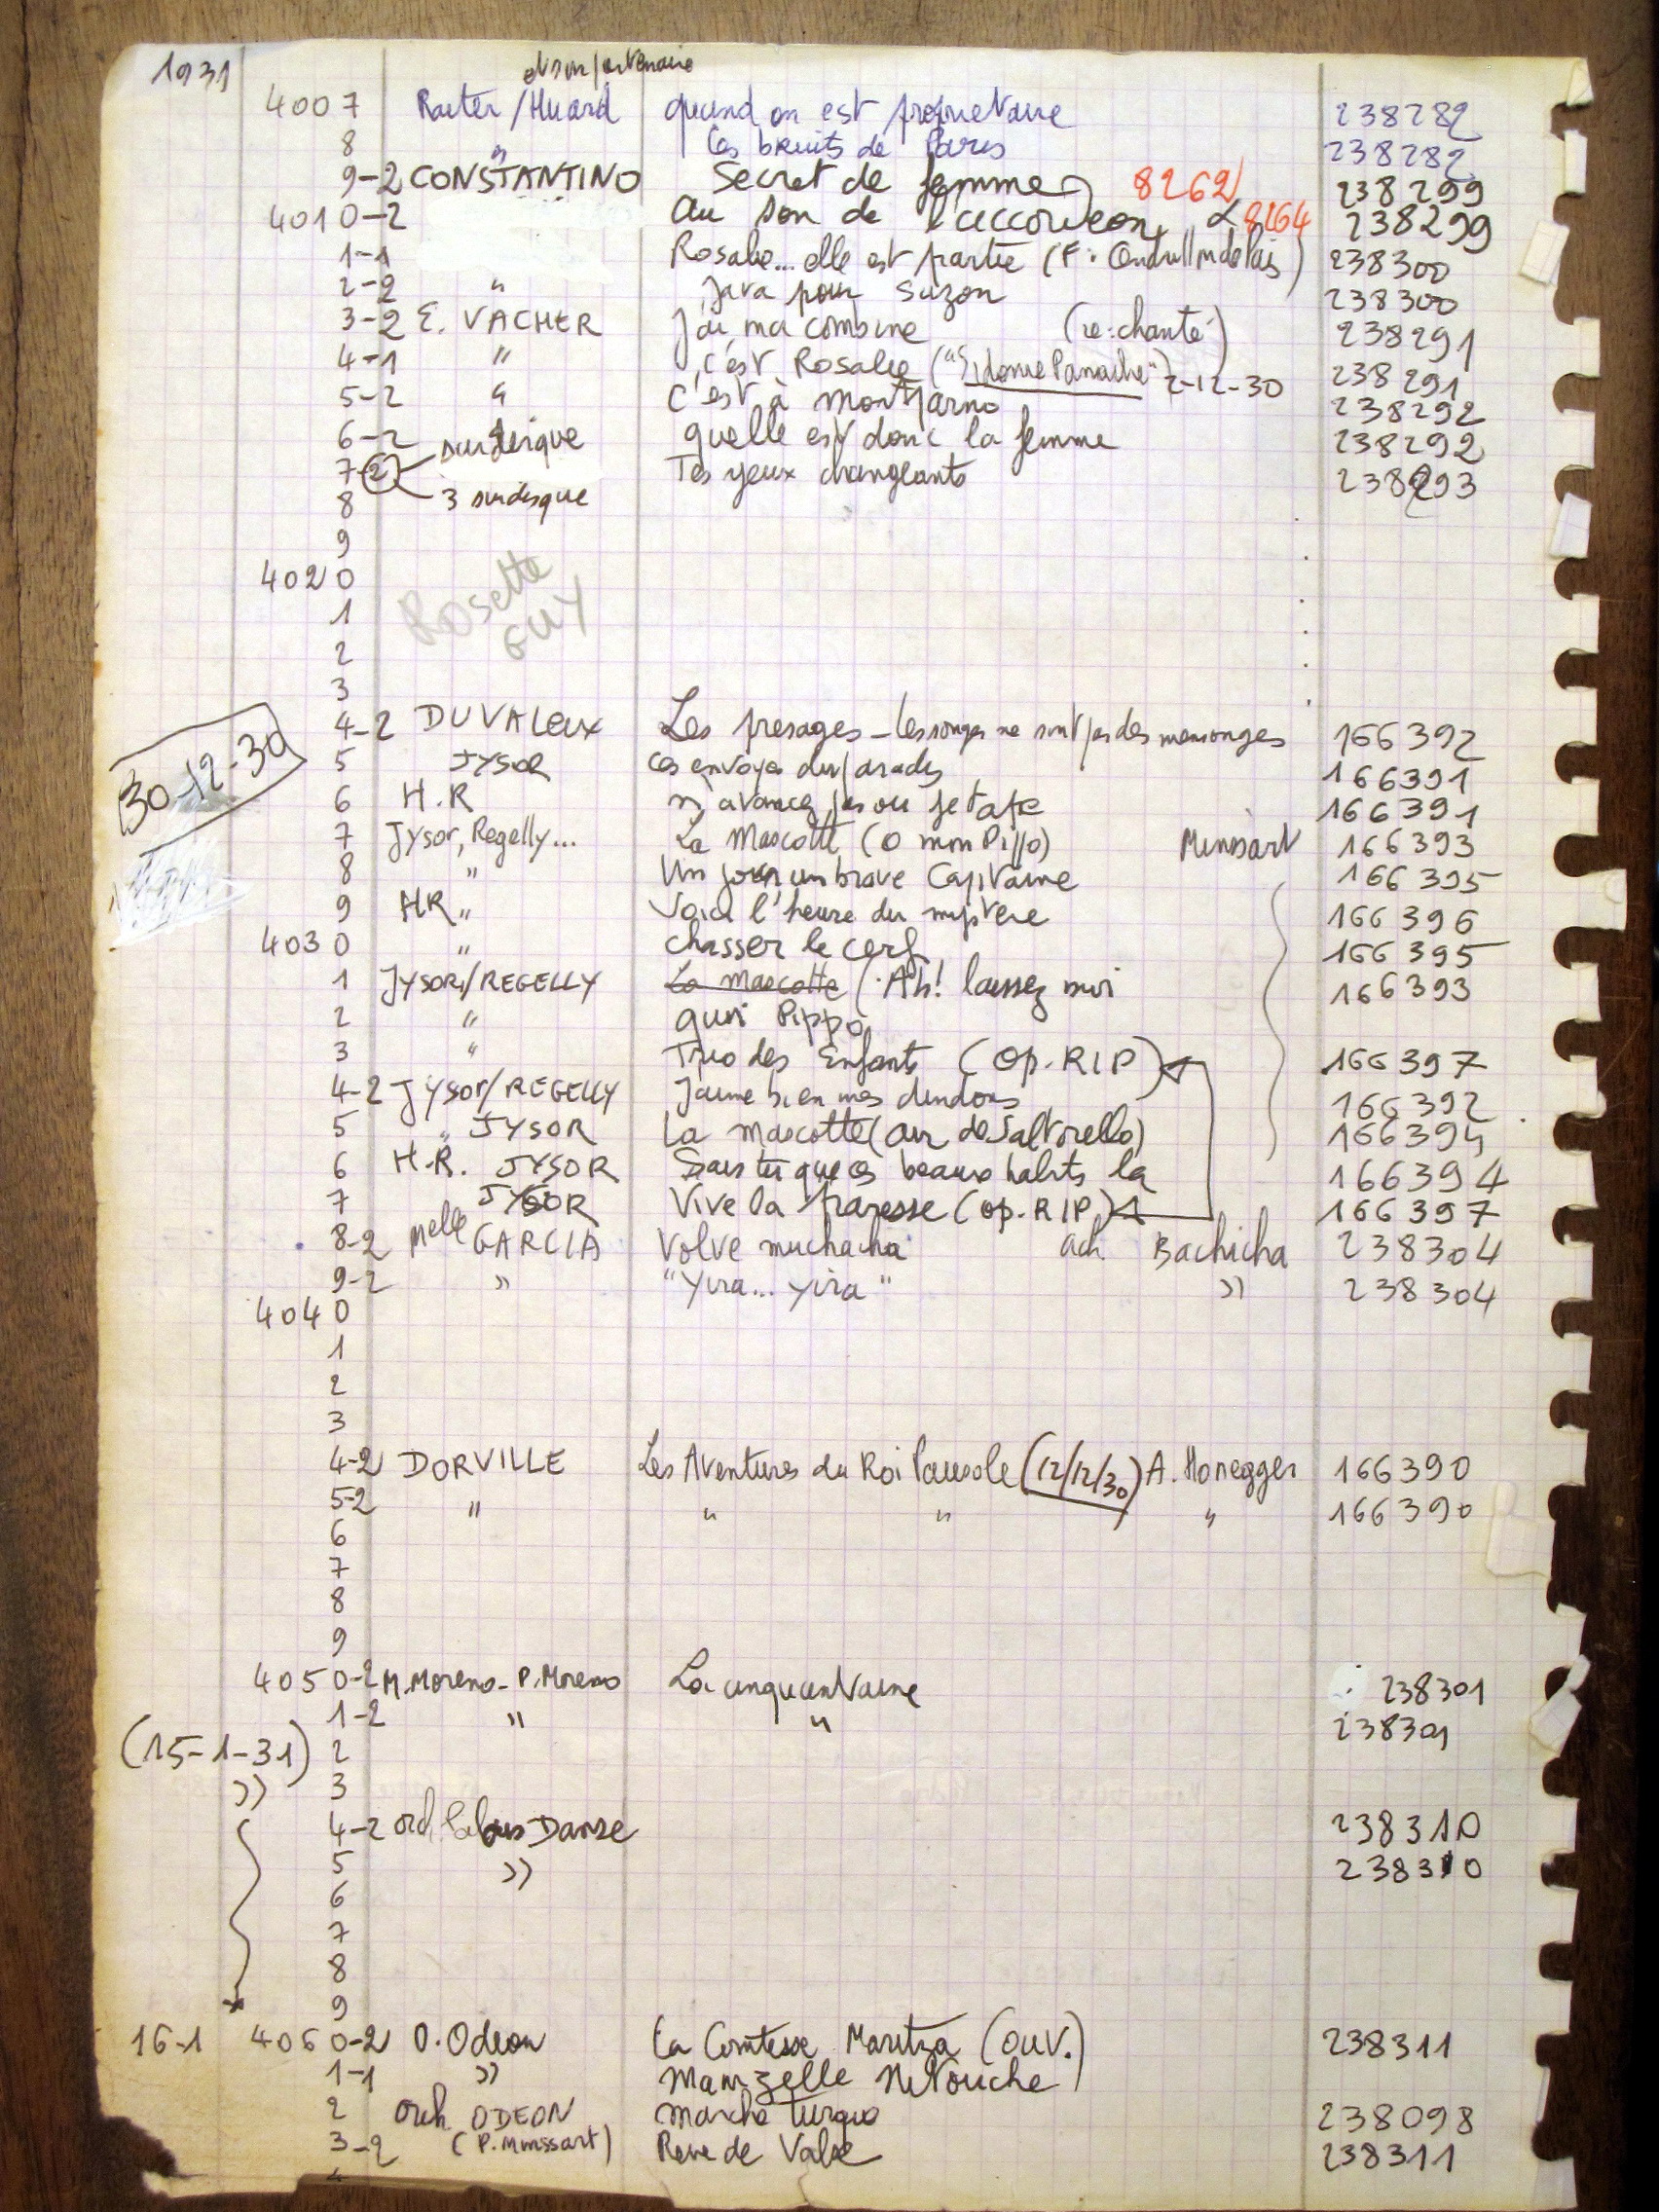 1931
4007 Rauter/Huard quand on est proprietaire 238282
8 " les bruits de Paris 238282
9-2 CONSTANTINO Secret de femme 8262 238299
4010-2 au son de l'accordeon 8264 238299
1-1 Rosalie... elle est partie (F: 238300
2-2 " Java pour Suzon 238300
3-2 E. VACHER J'ai ma combine (re: chanté) 238291
4-1 " c'est Rosalie ("Sidonie Panache") 2-12-30 238291
5-2 " c'est à Montparno 238292
6-2 surdisque quelle est donc la femme 238292
7-2 Tes yeux changeants 238293
8 3 surdisque
9
4020
Rosette
GUY
1
2
3
4-2 DUVALeux Les presages - les songes ne sont pas des mensonges 166392
30-12-30
5 JYSOR Ces envoyés du paradis 166391
6 H.R n'avancez pas ou je tape 166391
7 Jysor, Regelly... La Mascotte (O mon Pippo) Minssart 166393
8 " Un jour un brave Capitaine 166395
9 HR " Voici l'heure du mystere 166396
4030 " chasser le cerf 166395
1 JYSOR/REGELLY La mascotte (Ah! laissez moi 166393
2 " quoi Pippo
3 " Trio des Enfants (Op. RIP) 166397
4-2 JYSOR/REGELLY J'aime bien mes dindons 166392
5 " JYSOR La mascotte (air de Saltorello) 166394
6 H.R. JYSOR Sais tu que ces beaux habits la 166394
7 JYSOR Vive la paresse (op. RIP) 166397
8-2 Melle GARCIA Volve muchacha orch. Bachicha 238304
9-2 " "Yira... yira" " 238304
4040
1
2
3
4-2 DORVILLE Les Aventures du Roi Pausole (12/12/30) A. Honegger 166390
5-2 " " " " 166390
6
7
8
9
4050-2 M. Moreno - P. Moreno La cinquantaine 238301
1-2 " " 238301
(15-1-31) 2
" 3
4-2 orch Palais Danse 238310
5 " 238310
6
7
8
9
16-1 4060-2 O. Odeon La Comtesse Maritza (OUV.) 238311
1-1 " Mamzelle Nitouche
2 orch ODEON Marche turque 238098
3-2 (P. Minssart) Reve de Valse 238311